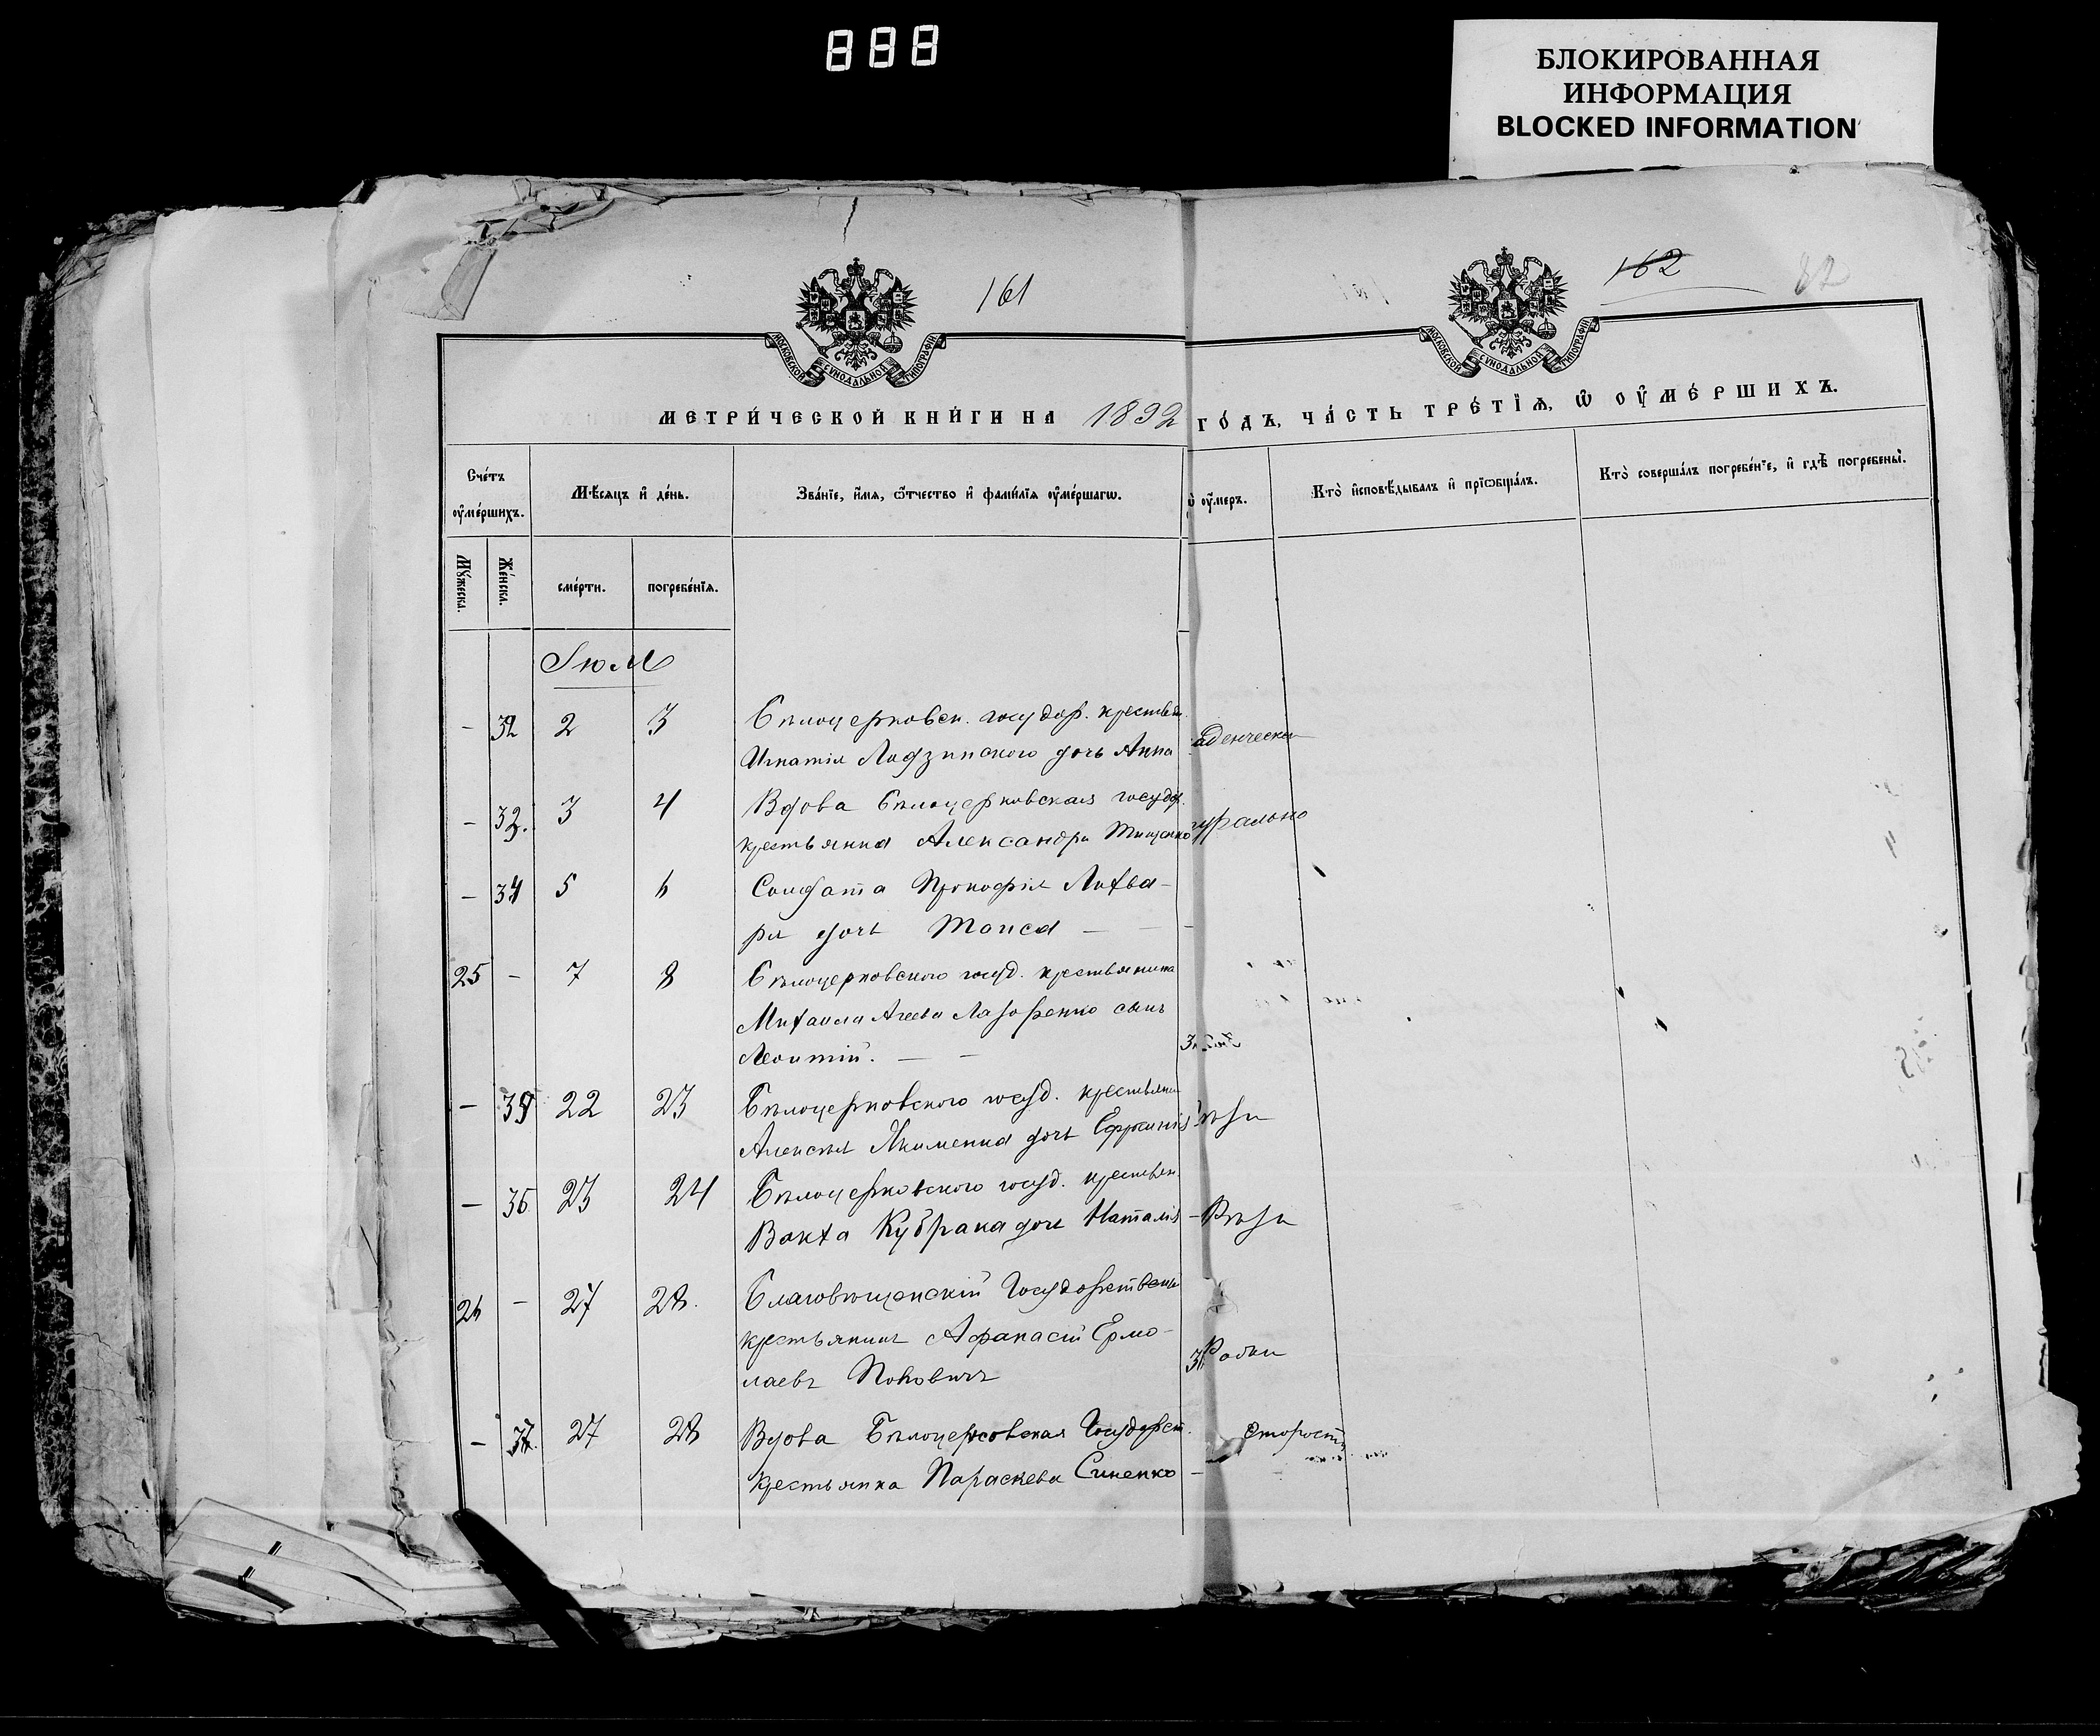 888
БЛОКИРОВАННАЯ
ИНФОРМАЦИЯ
BLOCKED INFORMATION
161
162
82
МОСКОВСКОЙ СѴНОДАЛЬНОЙ ТИПОГРАФІИ
МОСКОВСКОЙ СѴНОДАЛЬНОЙ ТИПОГРАФІИ
МЕТРИ́ЧЕСКОЙ КНИ́ГИ НА 1892 ГО́ДЪ, ЧА́СТЬ ТРЕ́ТІѦ, Ѡ ОУМЕ́РШИХЪ.
Сче́тъ оумершихъ.
Мѣ́сяцъ и де́нь.
Зва́ніе, имя, ѿтчество и фами́лія оуме́ршагѡ.
оумеръ.
Кто̀ исповѣ́дывалъ и пріѡбща́лъ.
Кто̀ соверша́лъ погребе́ніе, и гдѣ̀ погребены̀.
Мꙋ́жеска.
Же́нска.
сме́рти.
погребе́нія.
Іюль
– 32 2 3 Бѣлоцерковск. государ. крестьян.
Игнатія Лидзинского дочь Анна
аденческа
– 32. 3 4 Вдова Бѣлоцерковская государ.
крестьянка Александра Тищенко
турально
– 34 5 6 Солдата Прокофія Лихва-
ря дочь Таиса –
25 – 7 8 Бѣлоцерковского госуд. крестьянина
Михаила Агеева Лазоренко сынъ
Леонтій. – –
– 35 22 23 Бѣлоцерковского госуд. крестьянин
Алексѣя Якименка дочь Ефросинія
– 36 23 24 Бѣлоцерковского госуд. крестьян.
Вакха Кубрака дочь Наталія –
26 – 27 28. Благовѣщенскій Государственный
крестьянинъ Афанасій Ермо-
лаевъ
– 37. 27 28 Вдова Бѣлоцерковская Государст.
крестьянка Параскева Синенко –
Старости